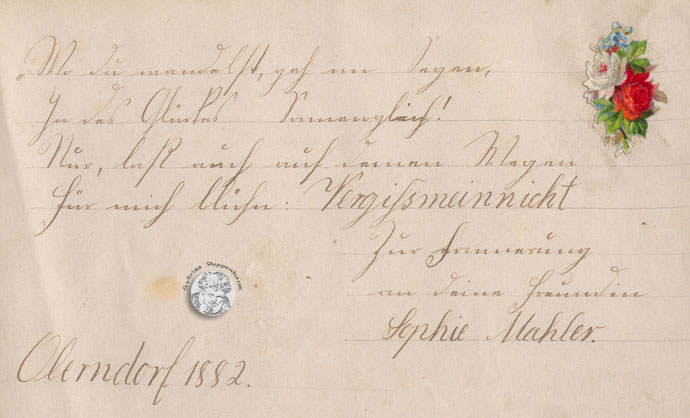 „Wo du wandelst, geh im Segen,
In des Glückes Sonnenglanz!
Nur, laß auch auf deinen Wegen
Für mich blühn: Vergißmeinnicht
Zur Erinnerung
an deine Freundin
Sophie Mahler.
Sylvias Puppenhaus
Oberndorf 1882.